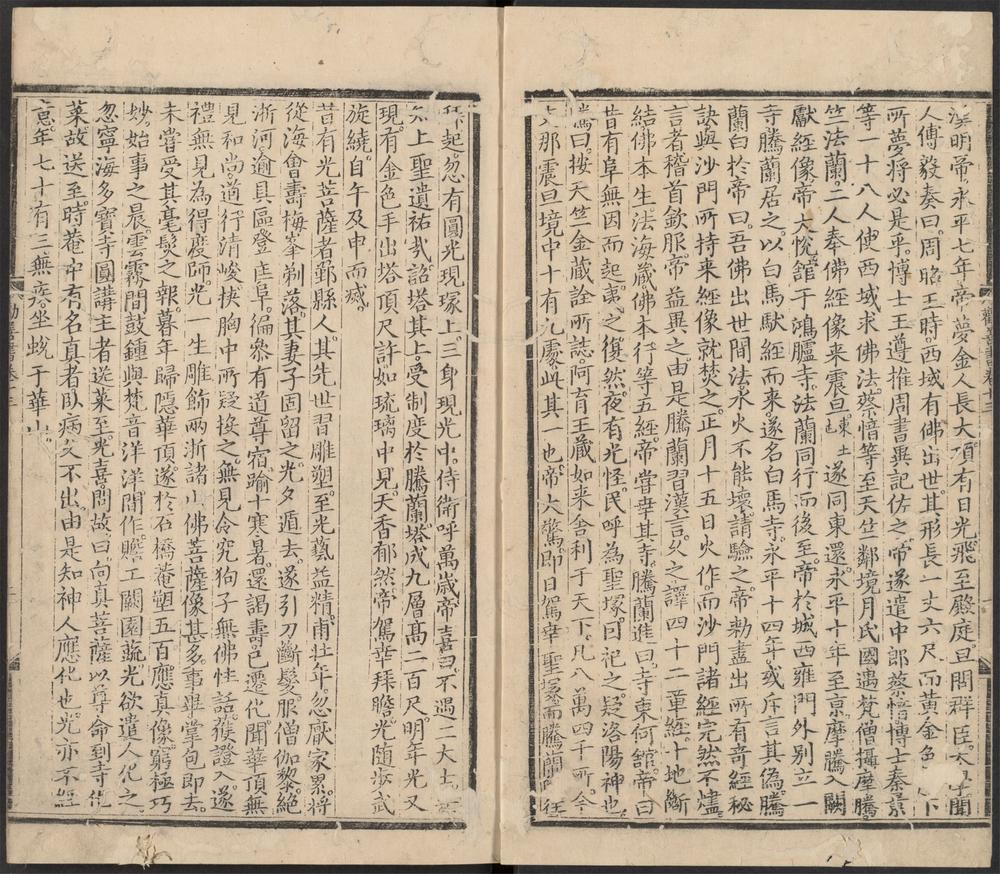 漢明帝永平七年帝夢金人長大頂有日光飛至殿庭旦問群臣太史聞
人傅毅奏曰周昭王時西域有佛出世其形長一丈六尺而黃金色陛下
所夢將必是乎博士王遵推周書異記佐之帝遂遣中郎蔡愔博士秦景
等一十八人使西域求佛法蔡愔等至天竺鄰境月氏國遇梵僧攝摩騰
竺法蘭二人奉佛經像来震旦東土也遂同東還永平十年至京摩騰入闕
獻經像帝大悅舘于鴻臚寺法蘭同行而後至帝於城西雍門外別立一
寺騰蘭居之以白馬馱經而来遂名白馬寺永平十四年或斥言其偽騰
蘭白於帝曰吾佛出世間法水火不能壞請驗之帝勑盡出所有竒經秘
訣與沙門所持来經像就焚之正月十五日火作而沙門諸經完然不燼
言者稽首欽服帝益異之由是騰蘭習漢言久之譯四十二章經十地斷
結佛本生法海藏佛本行等五經帝嘗幸其寺騰蘭進曰寺東何舘帝曰
昔有阜無因而起夷之復然夜有光怪民呼為聖塚因祀之疑洛陽神也
騰曰按天竺金藏詮所誌阿育王藏如来舍利于天下凡八萬四千所今
支那震旦境中十有九處此其一也帝大驚即日駕幸聖塚而騰蘭同往
拜起忽有圓光現塚上三身現光中侍衛呼萬歲帝喜曰不遇二大士安
知上聖遺祐㢤詔塔其上受制度於騰蘭塔成九層高二百尺明年光又
現有金色手出塔頂尺許如琉璃中見天香郁然帝駕幸拜瞻光随步武
旋繞自午及申而滅
昔有光菩薩者鄞縣人其先世習雕塑至光藝益精甫壯年忽厭家累將
從海會壽梅峯剃落其妻子固留之光夕遁去遂引刀斷髮服僧伽黎絕
浙河逾具區登匡阜徧叅有道尊宿踰十寒暑還謁壽已遷化聞華頂無
見和尚道行清峻挾胸中所疑投之無見令究狗子無佛性話獲證入遂
禮無見為得度師光一生雕飾兩浙諸山佛菩薩像甚多事畢掌包即去
未嘗受其毫髮之報暮年歸隱華頂遂於石橋菴塑五百應真像窮極巧
妙始事之晨雲霧間鼓鍾與梵音洋洋間作瞻工闕園蔬光欲遣人化之
忽寧海多寶寺圓講主者送菜至光喜問故曰向真菩薩以尊命到寺化
菜故送至時菴中有名真者臥病久不出由是知神人應化也光亦不經
意年七十有三無疾坐蛻于華山